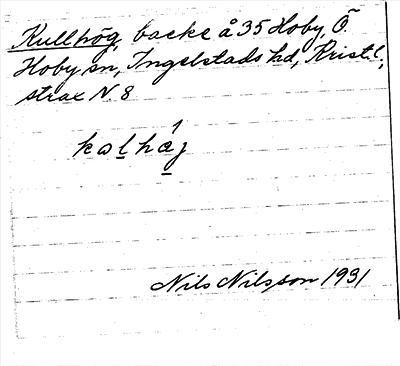 Kullhög, backe å 35 Hoby, Ö.
Hoby sn, Ingelstads hd, Krist. l.,
strax N. 8
kalháj
Nils Nilsson 1931